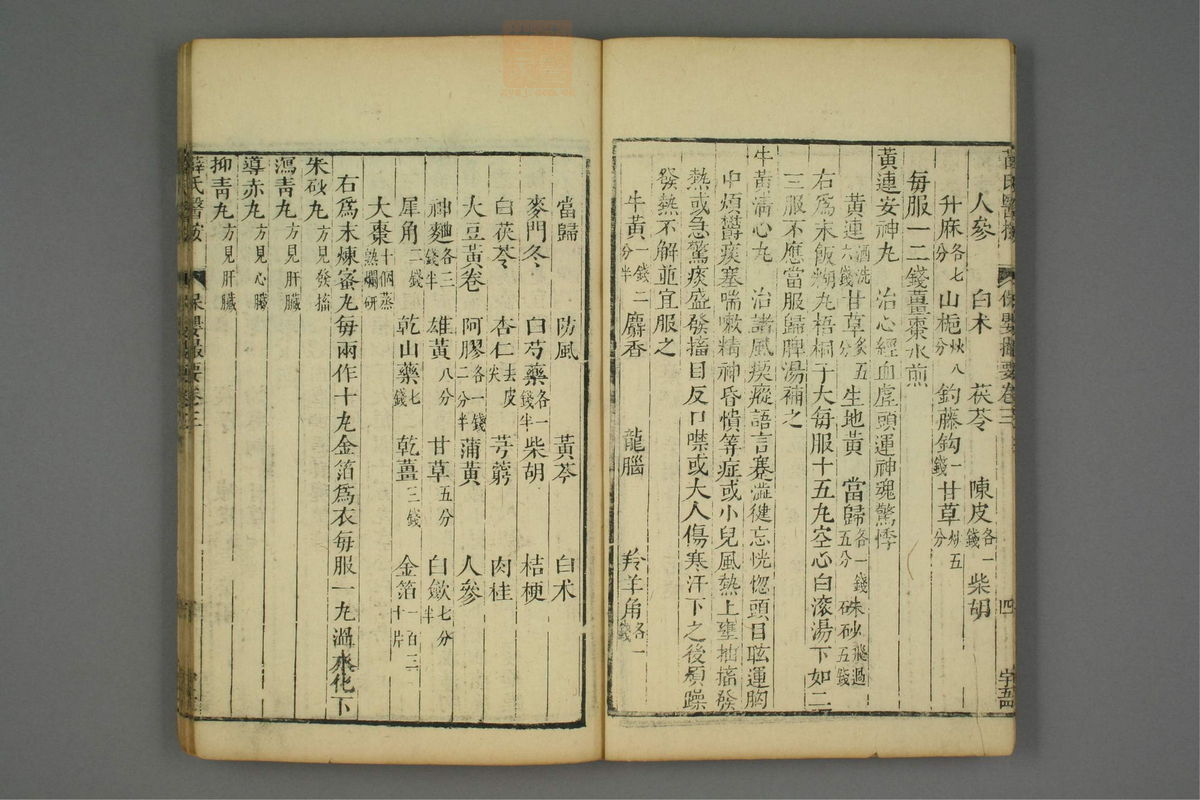 人參　白朮　茯苓　陳皮各一錢　柴胡
升麻各七分　山梔炒八分　鈎藤鈎一錢　甘草炒五分
每服一二錢薑棗水煎
黃連安神丸　治心經血虛頭運神魂驚悸
黃連酒洗六錢　甘草炙五分　生地黃　當歸各一錢五分　朱砂飛過五錢
右爲末飯糊丸梧桐子大每服十五丸空心白滾湯下如二
三服不應當服歸脾湯補之
牛黃淸心丸　治諸風瘈瘲語言蹇澁徤忘恍惚頭目眩運胸
中煩鬱痰塞喘嗽精神昏憒等症或小兒風熱上壅抽搐發
熱或急驚痰盛發搐目反口噤或大人傷寒汗下之後煩躁
發熱不解並宜服之
牛黃一錢二分半　麝香　龍腦　羚羊角各一錢
當歸　防風　黃芩　白朮
麥門冬　白芍藥各一錢半　柴胡　桔梗
白茯苓　杏仁去皮尖　芎藭　肉桂
大豆黃卷　阿膠各一錢二分半　蒲黃　人參
神麯各三錢半　雄黃八分　甘草五分　白歛七分半
犀角二錢　乾山藥七錢　乾薑三錢　金箔一百二十片
大棗十個蒸熟爛研
右爲末煉蜜丸每兩作十丸金箔爲衣每服一丸溫水化下
朱砂丸方見發搐
瀉靑丸方見肝臟
導赤丸方見心臟
抑靑丸方見肝臟
薛氏醫按　保嬰撮要卷三